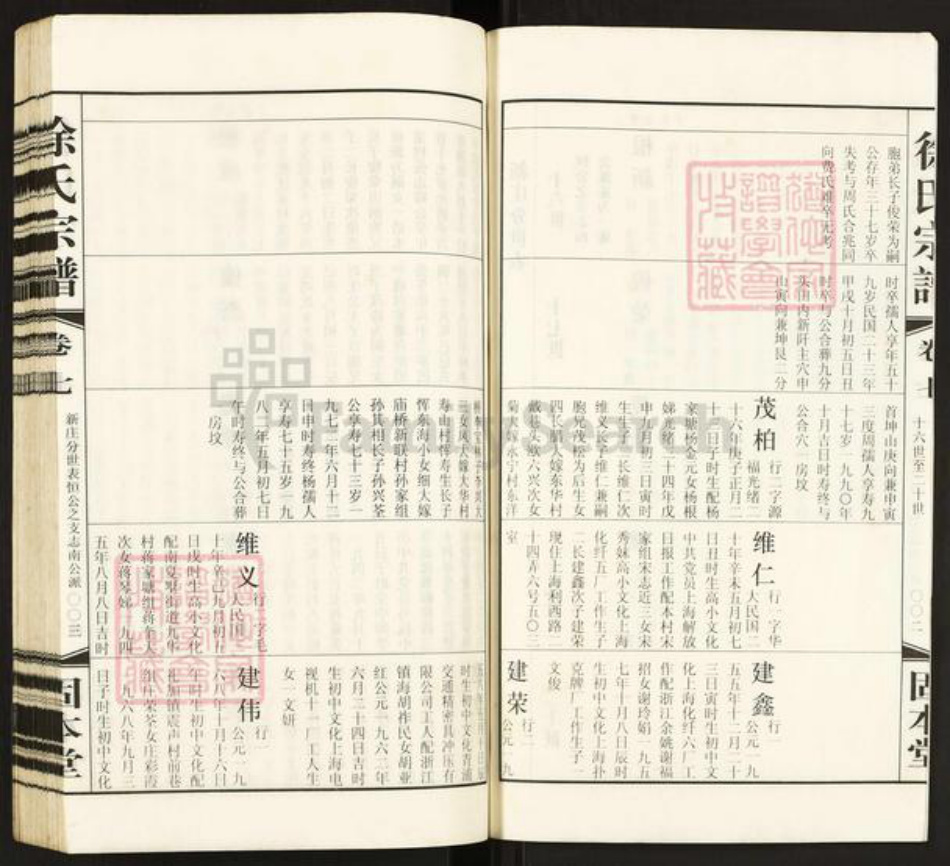 徐氏宗譜
卷七
十六世至二十世
〇〇二
固本堂
胞弟长子俊荣为嗣
公存年三十七岁卒
失考与周氏合兆同
向龚氏难卒无考
时卒孺人享年五十
九岁民国二十三年
甲戌十月初五日丑
时卒与公合葬九分
头田内新阡主穴申
山寅向兼坤艮二分
首坤山庚向兼申寅
三度周孺人享寿九
十七岁一九九〇年
十月吉日时寿终与
公合穴一房坟
茂柏 行二字源
福光绪二
十六年庚子正月二
十二日子时生配杨
家塘杨金元女杨根
娣光绪三十四年戊
申九月初三日寅时
生生子二长维仁次
维义长子维仁兼嗣
胞兄茂松为后生女
四长娟大嫁东华村
戴巷头歇六兴次女
菊大嫁永宁村东洋
维仁 行一字华
人民国二
十年辛未五月初七
日丑时生高小文化
中共党员上海解放
日报工作配本村宋
家组宋志近三女宋
秀妹高小文化上海
化纤五厂工作生子
二长建鑫次子建荣
现住上海利西路二
十四弄六号五〇三
室
建鑫 行一
公元一九
五五年十二月二十
三日寅时生初中文
化上海化纤六厂工
作配浙江余姚谢福
招女谢玲娟一九五
七年十月八日辰时
生初中文化上海扑
克牌厂工作生子一
文俊
建荣 行二
公元一九
寿山村恽寿生长子
恽东海小女细大嫁
庙桥新联村孙家组
孙其相长子孙兴荃
公享寿七十三岁一
九七二年六月十二
日申时寿终杨孺人
享寿七十五岁一九
八二年五月初七日
午时寿终与公合葬
房坟
维义 行二字毛
人民国二
十年辛巳九月初五
日戌时生高小文化
配南夏墅街道九华
村蒋家塘组蒋金大
次女蒋琴娣一九四
五年八月八日吉时
时生初中文化青浦
交通精密具冲压有
限公司工人配浙江
镇海胡祚民女胡亚
红公元一九六二年
六月二十四日吉时
生初中文化上海电
视机十一厂工人生
女一文妍
建伟 行一
公元一九
六八年十月十六日
午时生初中文化配
祀加镇震声村前巷
组庄荣苓女庄彩霞
一九六八年九月三
日子时生初中文化
徐氏宗譜
卷七
新庄分世表恒公之支志南公派
〇〇三
固本堂
FamilySearch